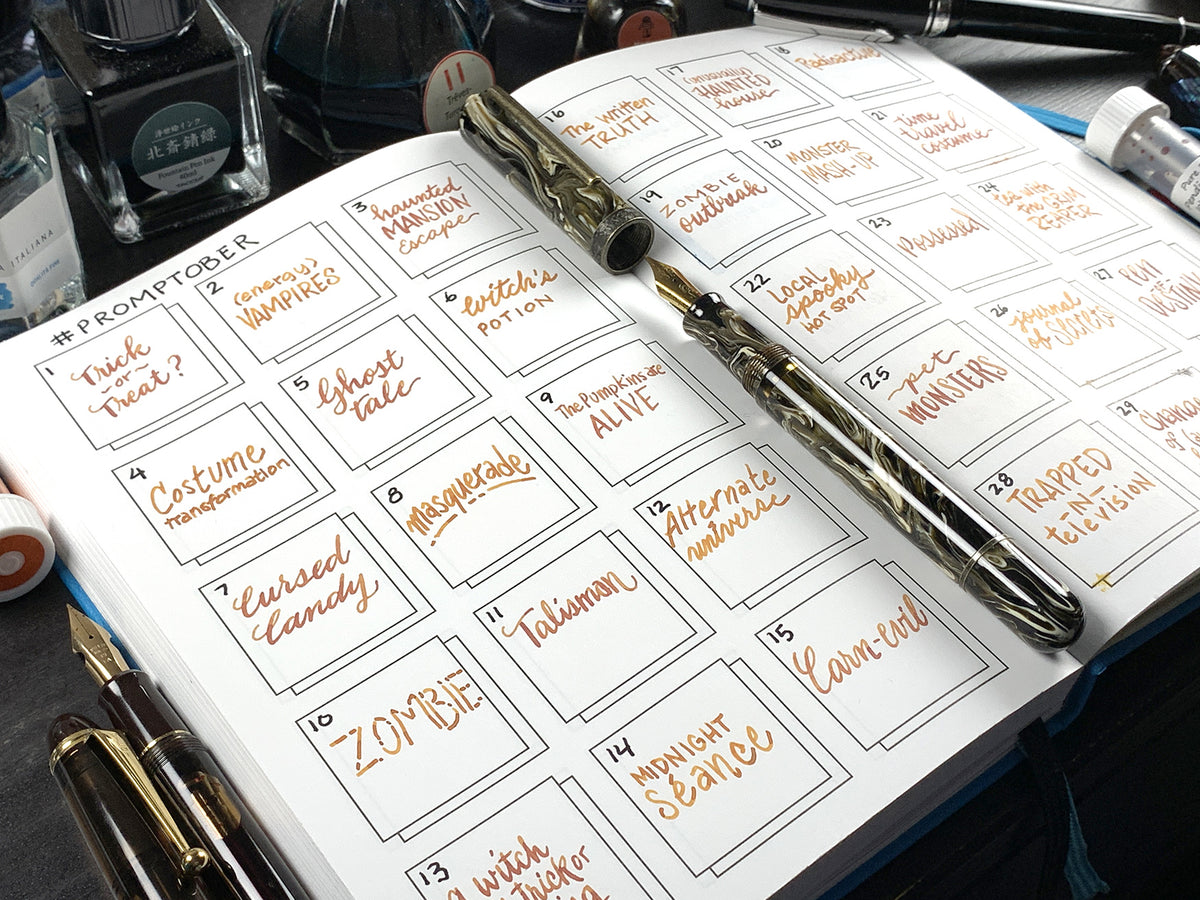 #PROMPTOBER
1
Trick
~or~
Treat?
2
(energy)
VAMPIRES
3
haunted
MANSION
Escape
4
Costume
transformation
5
Ghost
tale
6
Witch's
POTION
7
Cursed
Candy
8
Masquerade
9
The Pumpkins are
ALIVE
10
ZOMBIE
11
Talisman
12
Alternate
universe
13
a witch
trick or
14
MIDNIGHT
séance
15
Carn-evil
16
The written
TRUTH
17
HAUNTED
house
18
Radioactive
19
ZOMBIE
outbreak
20
MONSTER
MASH-UP
21
time
travel
costume
22
LOCAL
spooky
HOT SPOT
23
Possessed
24
Tea with
the GRIM
REAPER
25
pet
MONSTERS
26
journal
of Secrets
27
28
TRAPPED
-IN-
television
29
of
浮世絵インク
北斎錆緑
Fountain Pen Ink
40ml
TACCIA
ITALIANA
Pure